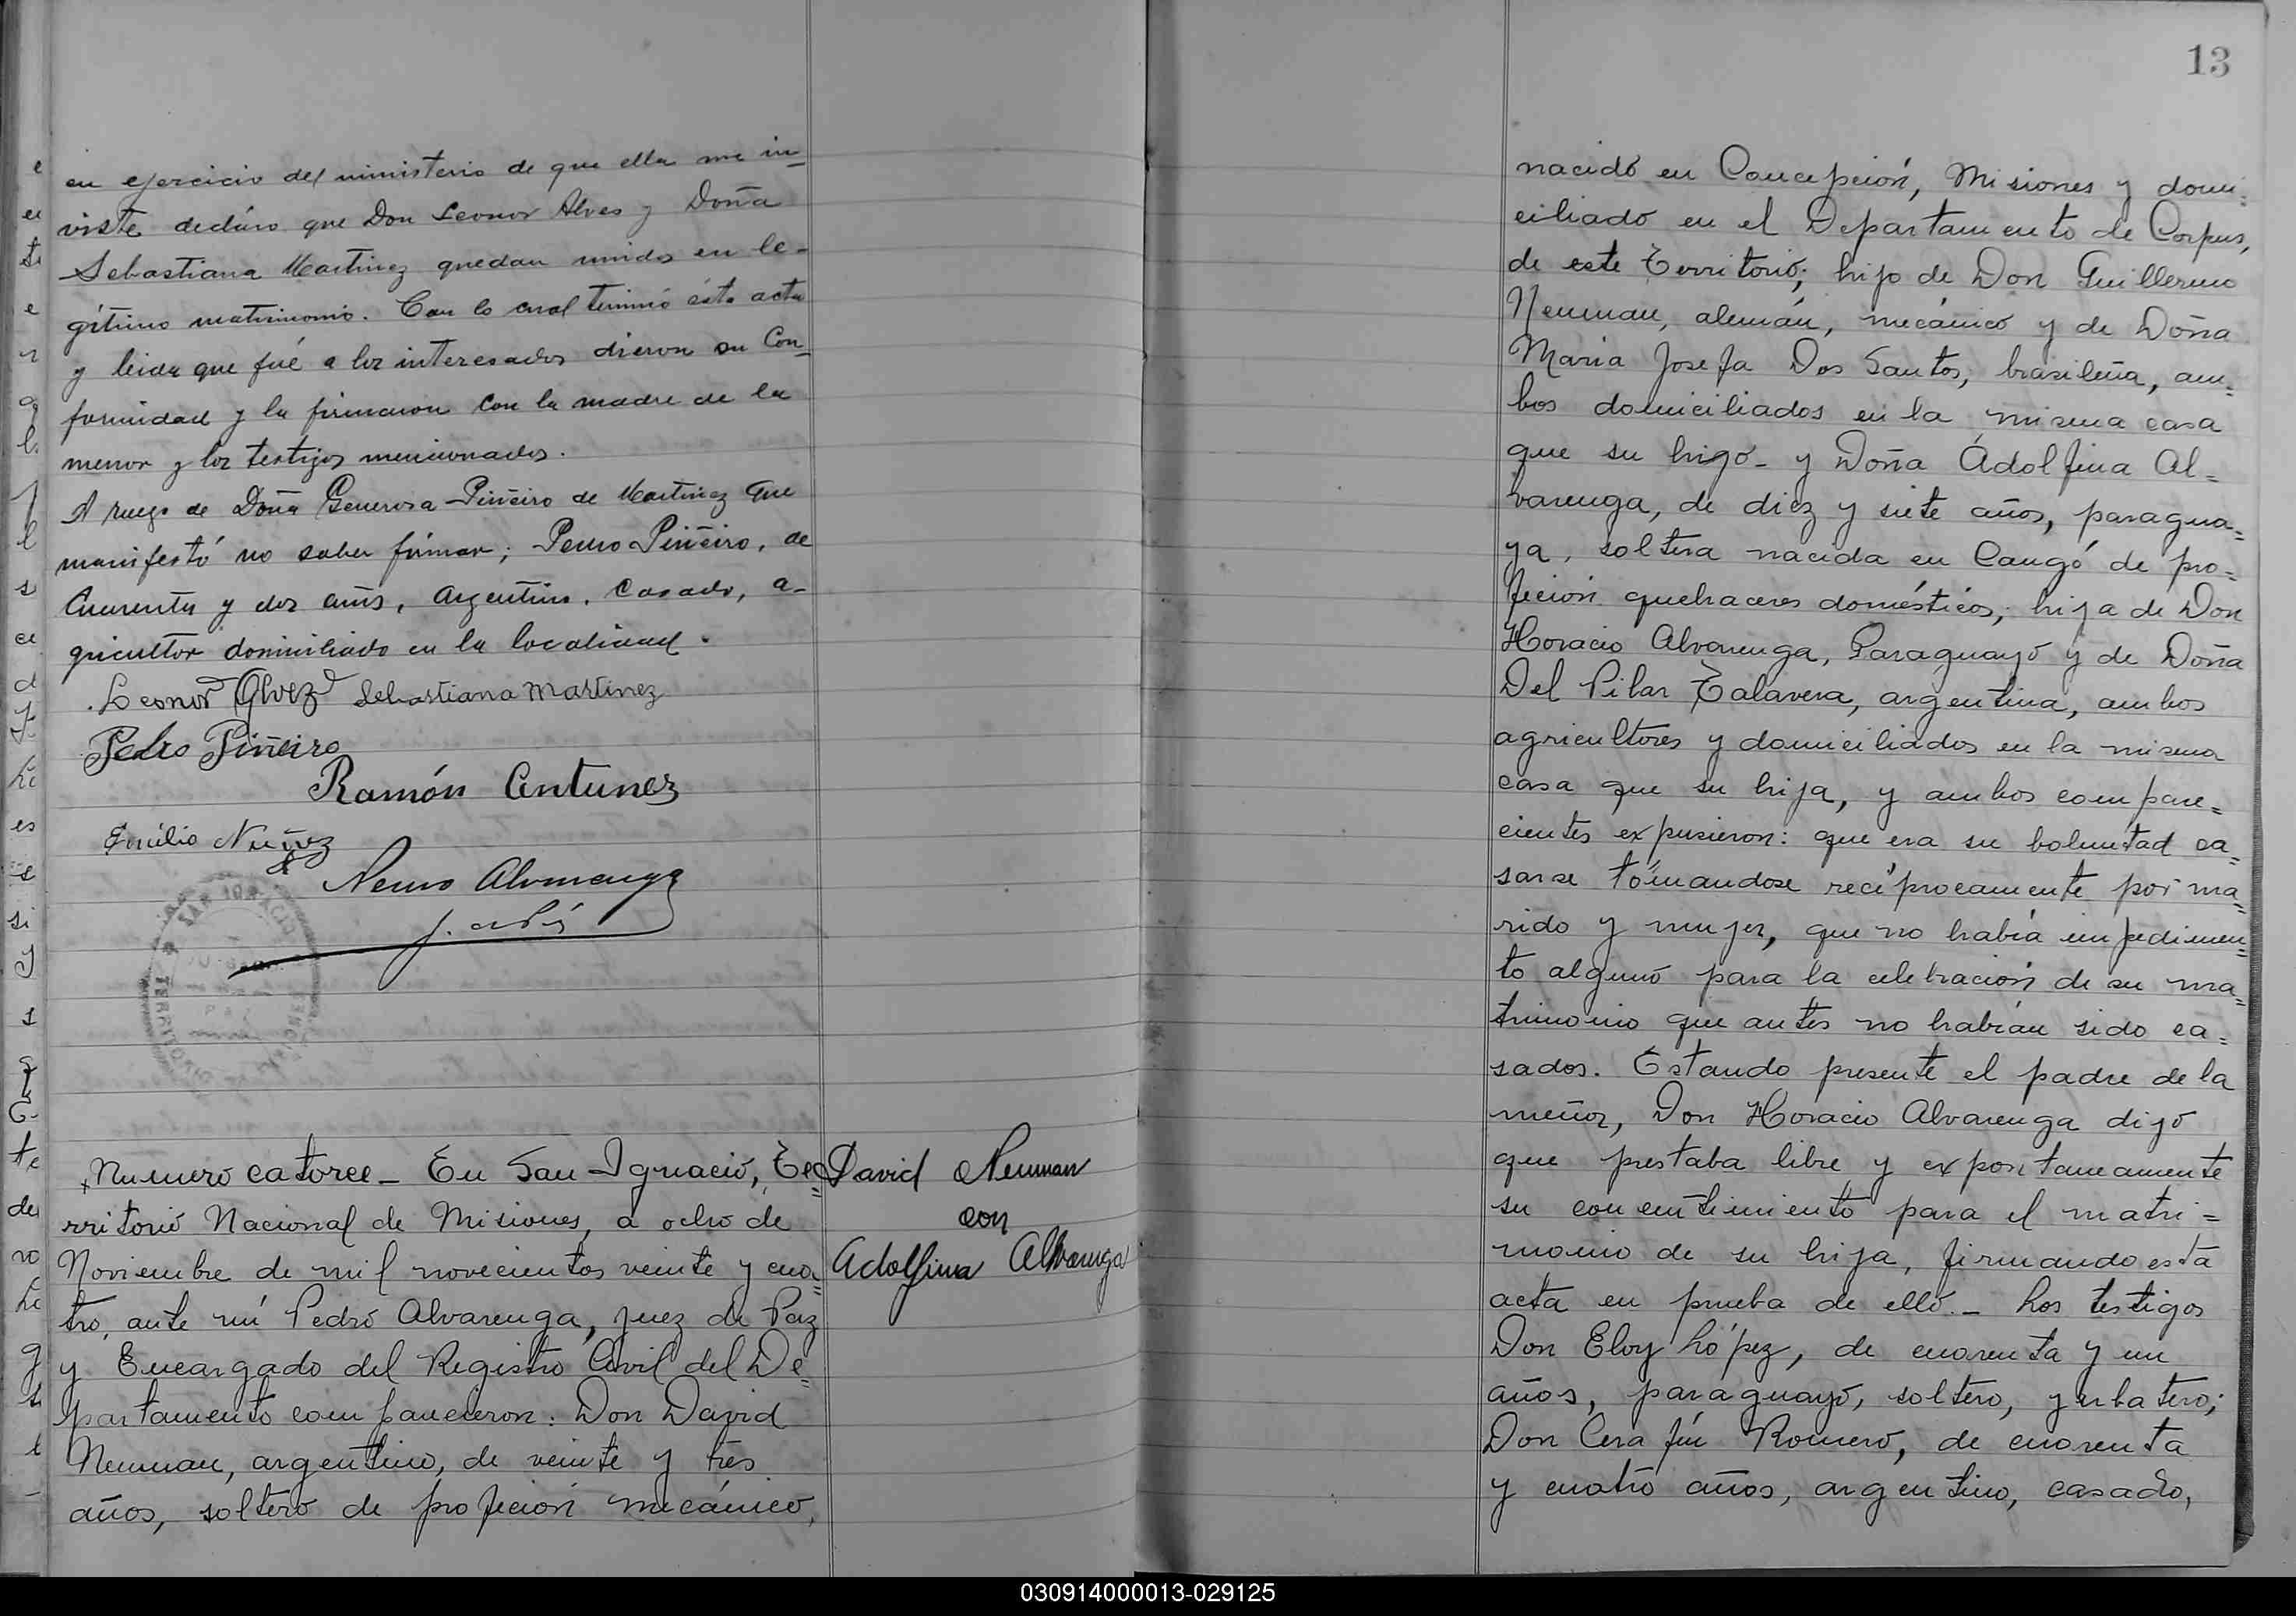 en ejercicio del ministerio de que ella me in-
viste declaro que Don Leonor Alves y Doña
Sebastiana Martinez quedan unidos en le-
gítimo matrimonio. Con lo cual terminó ésta acta
y leida que fué a los interesados dieron su Con-
formidad y la firmaron con la madre de la
menor y los testigos mencionados.
A ruego de Doña Generosa Piñeiro de Martinez que
manifestó no saber firmar; Pedro Piñeiro, de
Cuarenta y dos años, Argentino, Casado, a-
gricultor domiciliado en la localidad.
Leonor Alvez Sebastiana Martinez
Pedro Piñeiro
Ramón Antunez
Emilio Nuñez
Pedro Alvarenga
J. de Paz
SAN IGNACIO
TERRITORIO
Numero catorce_ En San Ignacio, Te=
rritorio Nacional de Misiones, a ocho de
Noviembre de mil novecientos veinte y cua=
tro, ante mí Pedro Alvarenga, juez de Paz
y Encargado del Registro Civil del De=
partamento comparecieron: Don David
Neuman, argentino, de veinte y tres
años, soltero de profeción mecánico,
David Neuman
con
Adolfina Alvarenga
13
nacido en Concepción, Misiones y domi=
ciliado en el Departamento de Corpus,
de este Territorio; hijo de Don Guillermo
Neuman, alemán, mecánico y de Doña
Maria Josefa Dos Santos, brasileña, am=
bos domiciliados en la misma casa
que su higo_ y Doña Adolfina Al=
varenga, de diez y siete años, paragua=
ya, soltera nacida en Cangó de pro=
feción quehaceres domésticos; hija de Don
Horacio Alvarenga, Paraguayo y de Doña
Del Pilar Talavera, argentina, ambos
agricultores y domiciliados en la misma
casa que su hija, y ambos compare=
cientes expusieron: que era su boluntad ca=
sarse tómandose recíprocamente por ma=
rido y mujer, que no había impedimen=
to alguno para la celebración de su ma=
trimonio que antes no habían sido ca=
sados. Estando presente el padre de la
meñor, Don Horacio Alvarenga dijo
que prestaba libre y expontaneamente
su concentimiento para el matri=
monio de su hija, firmando esta
acta en prueba de ello._ Los testigos
Don Eloy López, de cuarenta y un
años, paraguayo, soltero, yerbatero;
Don Cerafín Romero, de cuarenta
y cuatro años, argentino, casado,
030914000013-029125